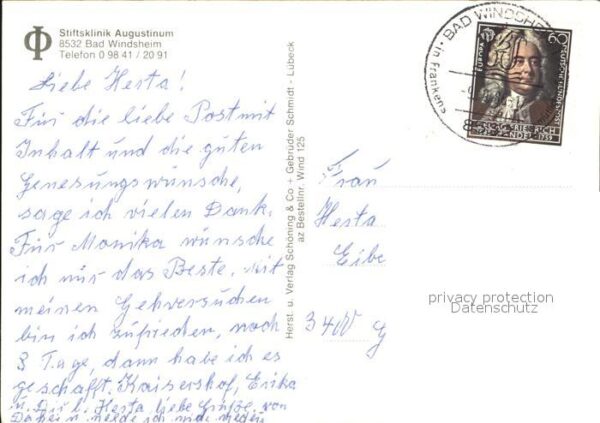 Stiftsklinik Augustinum
8532 Bad Windsheim
Telefon 0 98 41 / 20 91
Liebe Herta!
Für die liebe Post mit
Inhalt und die guten
Genesungswünsche,
sage ich vielen Dank.
Für Monika wünsche
ich nur das Beste. Mit
meinen Gehversuchen
bin ich zufrieden, noch
3 Tage, dann habe ich es
geschafft. Kaisershof, Erika
u. Dir l. Herta liebe Grüße von
Herst. u. Verlag Schöning & Co + Gebrüder Schmidt - Lübeck
az Bestellnr. Wind 125
BAD WINDSHE
in Franken
EUROPA
60
DEUTSCHE BUNDESPOST
FRIEDRICH
HÄNDEL 1759
Frau
Herta
Eibe
3400 G
privacy protection
Datenschutz